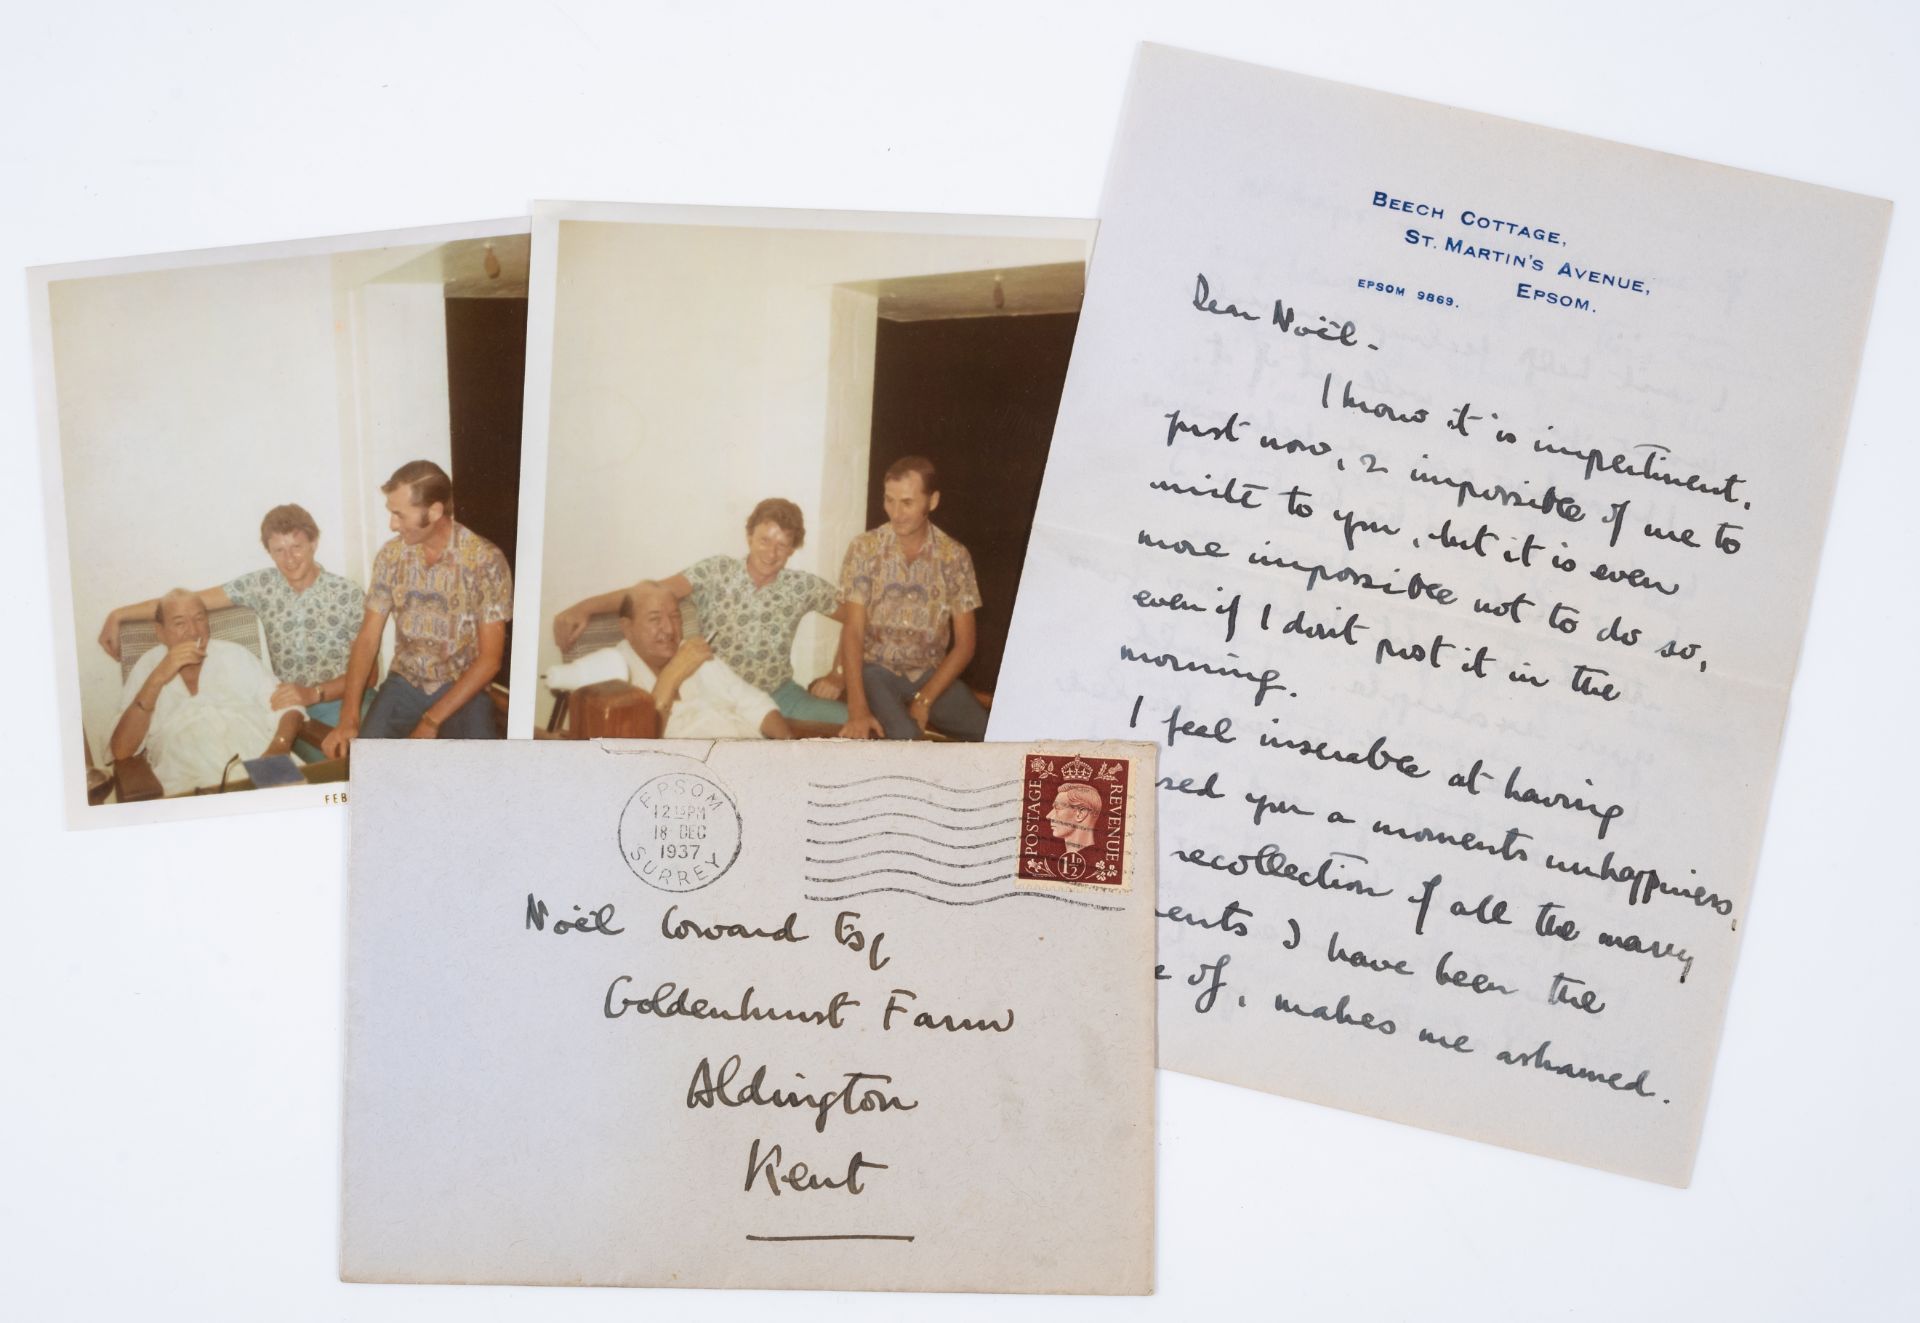 FEB
EPSOM
12 15 PM
18 DEC
1937
SURREY
POSTAGE
REVENUE
1½D
Noël Coward Esq
Goldenhurst Farm
Aldington
Kent
BEECH COTTAGE,
ST. MARTIN'S AVENUE,
EPSOM 9869. EPSOM.
Dear Noël -
I know it is impertinent,
just now, & impossible of me to
write to you, but it is even
more impossible not to do so,
even if I don't post it in the
morning.
I feel miserable at having
sed you a moments unhappiness,
recollection of all the many
ents I have been the
e of, makes me ashamed.